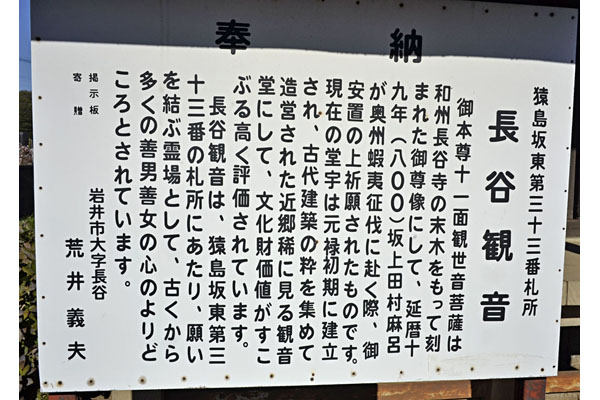 奉納
猿島坂東第三十三番札所
長谷観音
御本尊十一面観世音菩薩は
和州長谷寺の末木をもって刻
まれた御尊像にして、延暦十
九年（八〇〇）坂上田村麻呂
が奥州蝦夷征伐に赴く際、御
安置の上祈願されたものです。
現在の堂宇は元禄初期に建立
され、古代建築の粋を集めて
造営された近郷稀に見る観音
堂にして、文化財価値がすこ
ぶる高く評価されています。
長谷観音は、猿島坂東第三
十三番の札所にあたり、願い
を結ぶ霊場として、古くから
多くの善男善女の心のよりど
ころとされています。
掲示板
寄贈
岩井市大字長谷
荒井義夫